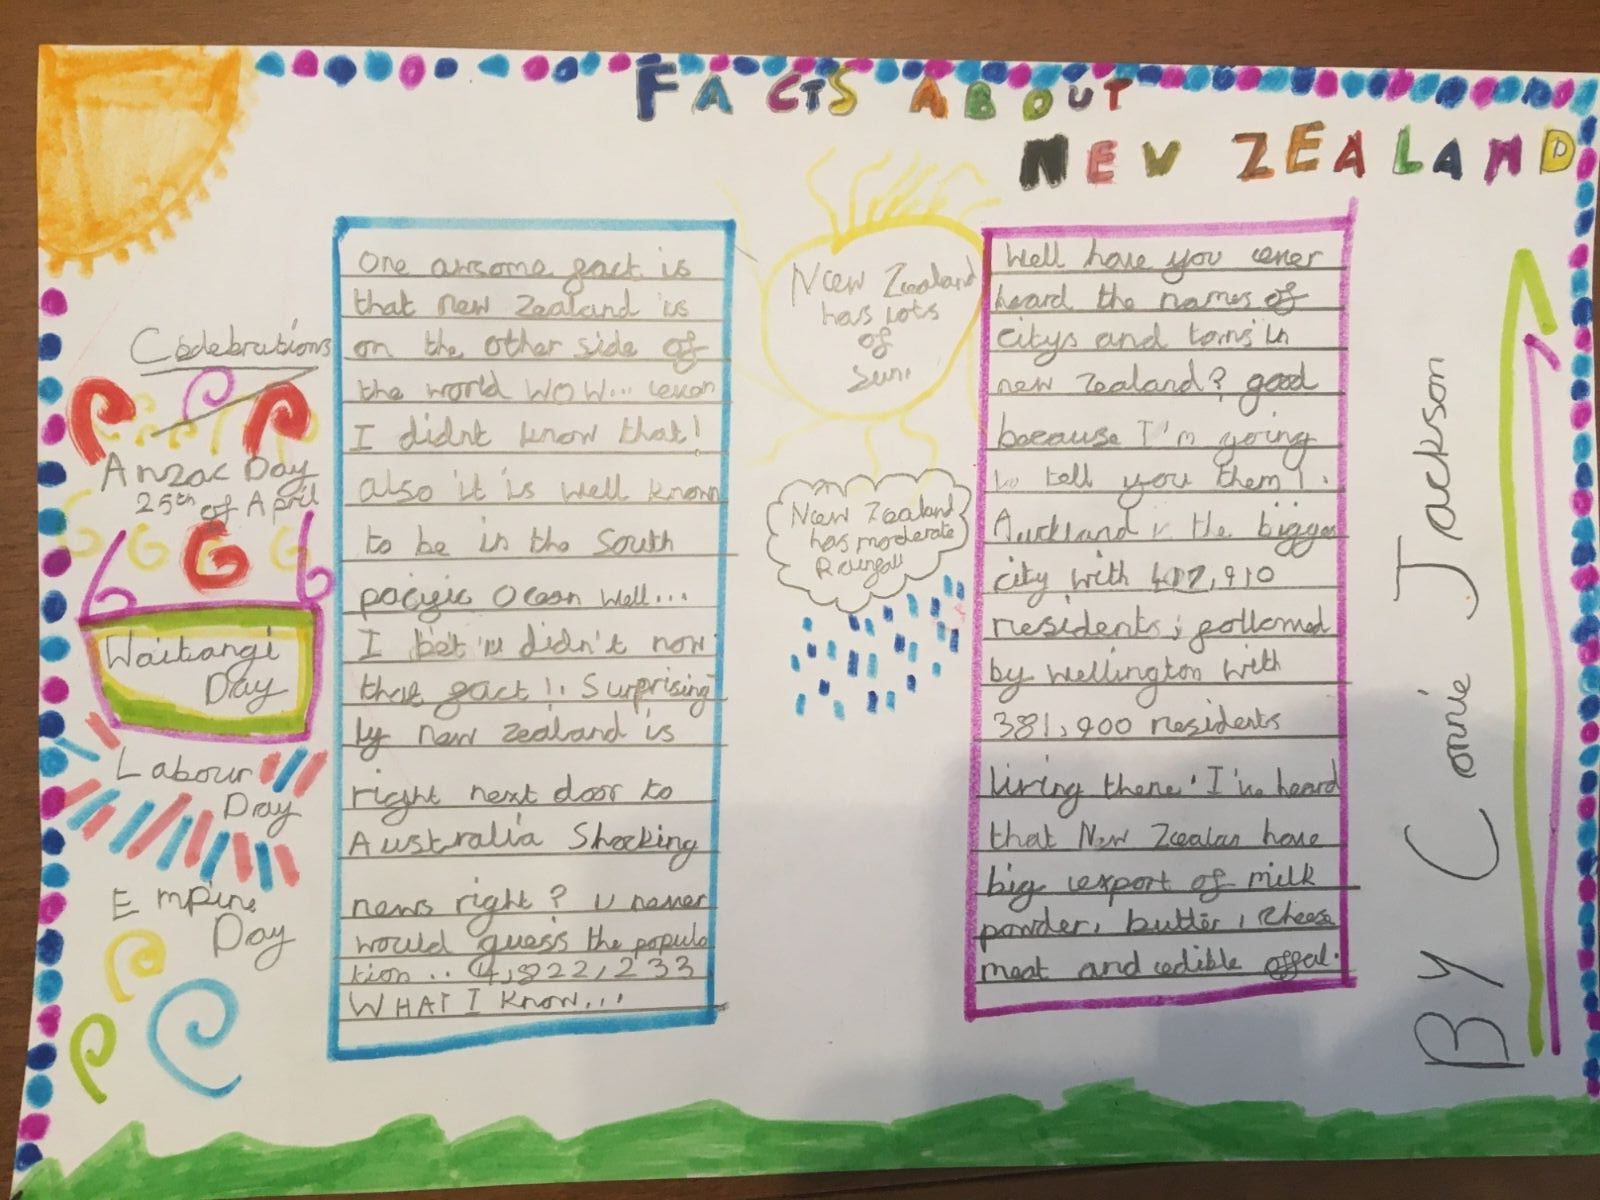 FACTS ABOUT
NEW ZEALAND
Celebrations
Anzac Day
25th of April
Waitangi
Day
Labour
Day
Empire
Day
One awsome fact is
that new Zealand is
on the other side of
the world WOW... even
I didnt know that!
also it is well known
to be in the South
pacific Ocean well...
I bet u didn't now
that fact!. Surprising
ly new zealand is
right next door to
Australia Shocking
news right? U never
would guess the popula
tion.. 4,822,233
WHAT I KNOW...
New Zealand
has lots
of
Sun.
New Zealand
has moderate
Rainfall
Well have you ever
heard the names of
citys and towns in
new zealand? good
because I'm going
to tell you them!.
Auckland is the bigges
city with 417,910
residents, followed
by wellington with
381,900 residents
living there. I've heard
that New Zealan have
big export of milk
powder, butter, cheese
meat and edible offal.
By Connie Jackson